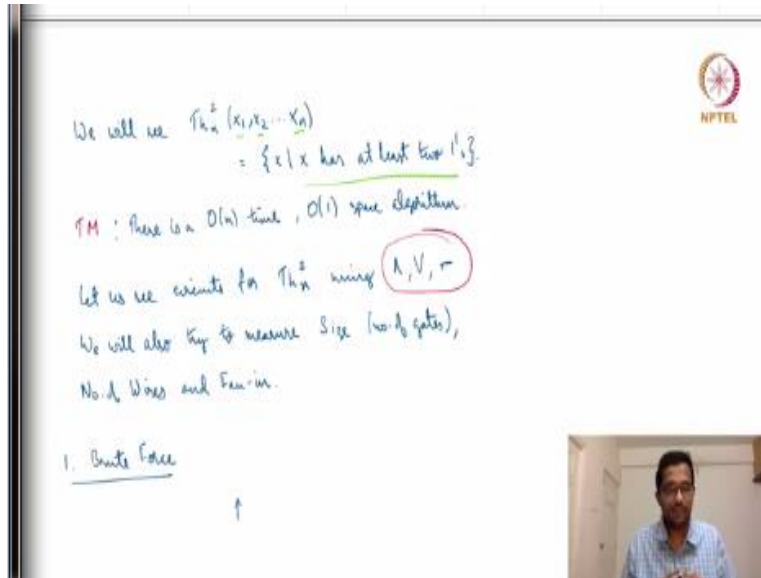 We will see Th_n^2 (x_1, x_2 ... x_n)
= {x | x has at least two 1's}.
TM : There is a O(n) time, O(1) space algorithm.
Let us see circuits for Th_n^2 using ∧, ∨, ¬
We will also try to measure Size (no. of gates),
No. of Wires and Fan-in.
1. Brute Force
NPTEL